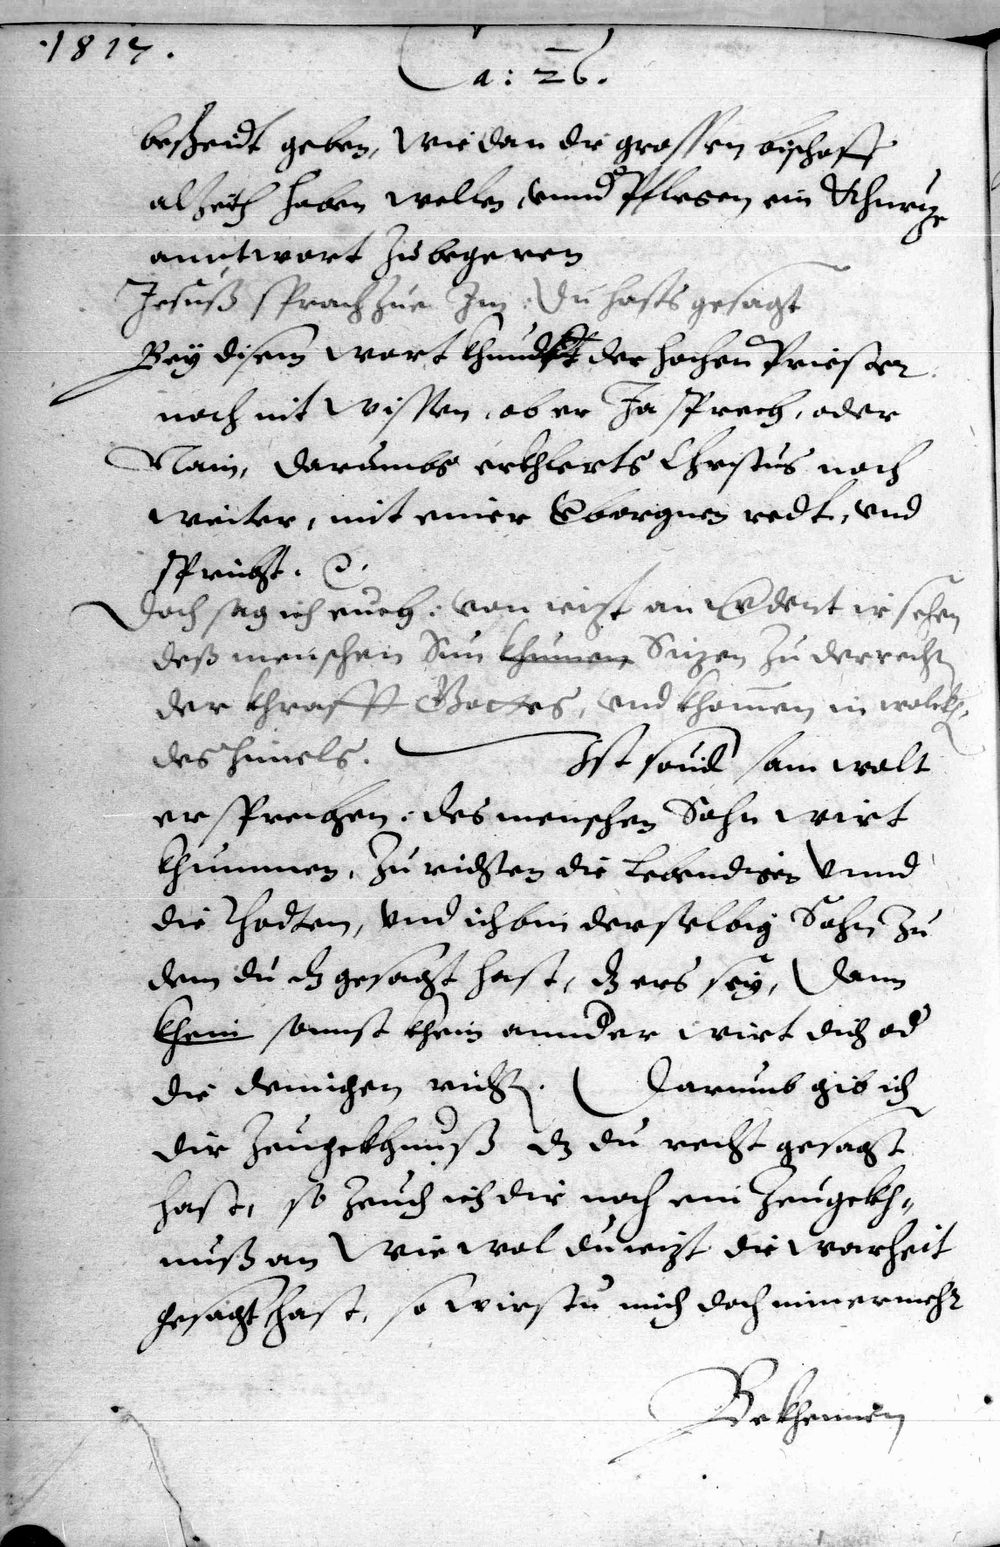 1817.
Ca: 26.
bescheidt geben, wie dan die grossen bischoff
alzeit haben wellen, unnd Pflegen ein khurze
anntwort zu begeren
Jesuß sprach zue Im. Du hasts gesagt
Bey disem wort khundt der hochen Priester
noch nit wissen, ob er Ja sprech, oder
Nain, darumbs erkhlerts Chrstus noch
weiter, mit einer verborgnen redt, und
spricht.
Doch sag ich euch. von iezt an werdent ir sehen
deß menschen Sun khumen Sizen zu der recht
der khrafft Gottes, und khomen in wolckh.
des himels. Ist sovil sam wolt
er sprechen. des menschen Sohn wirt
khummen, zu richten die Lebendigen Unnd
die Thodten, und ich bin derselbig Sohn zu
dem du dz gesagt hast, dz ers sey, Dann
khein sonnst khein annder wirt dich od
die deinigen richt. Darumb gib ich
dir Zeugekhnuß dz du recht gesagt
hast, so zeuch ich dir noch ein Zeugekh„
nuß an Wie wol du iezt die warheit
gesagt hast, so wirstu mich doch nimermehr
Bekhennen